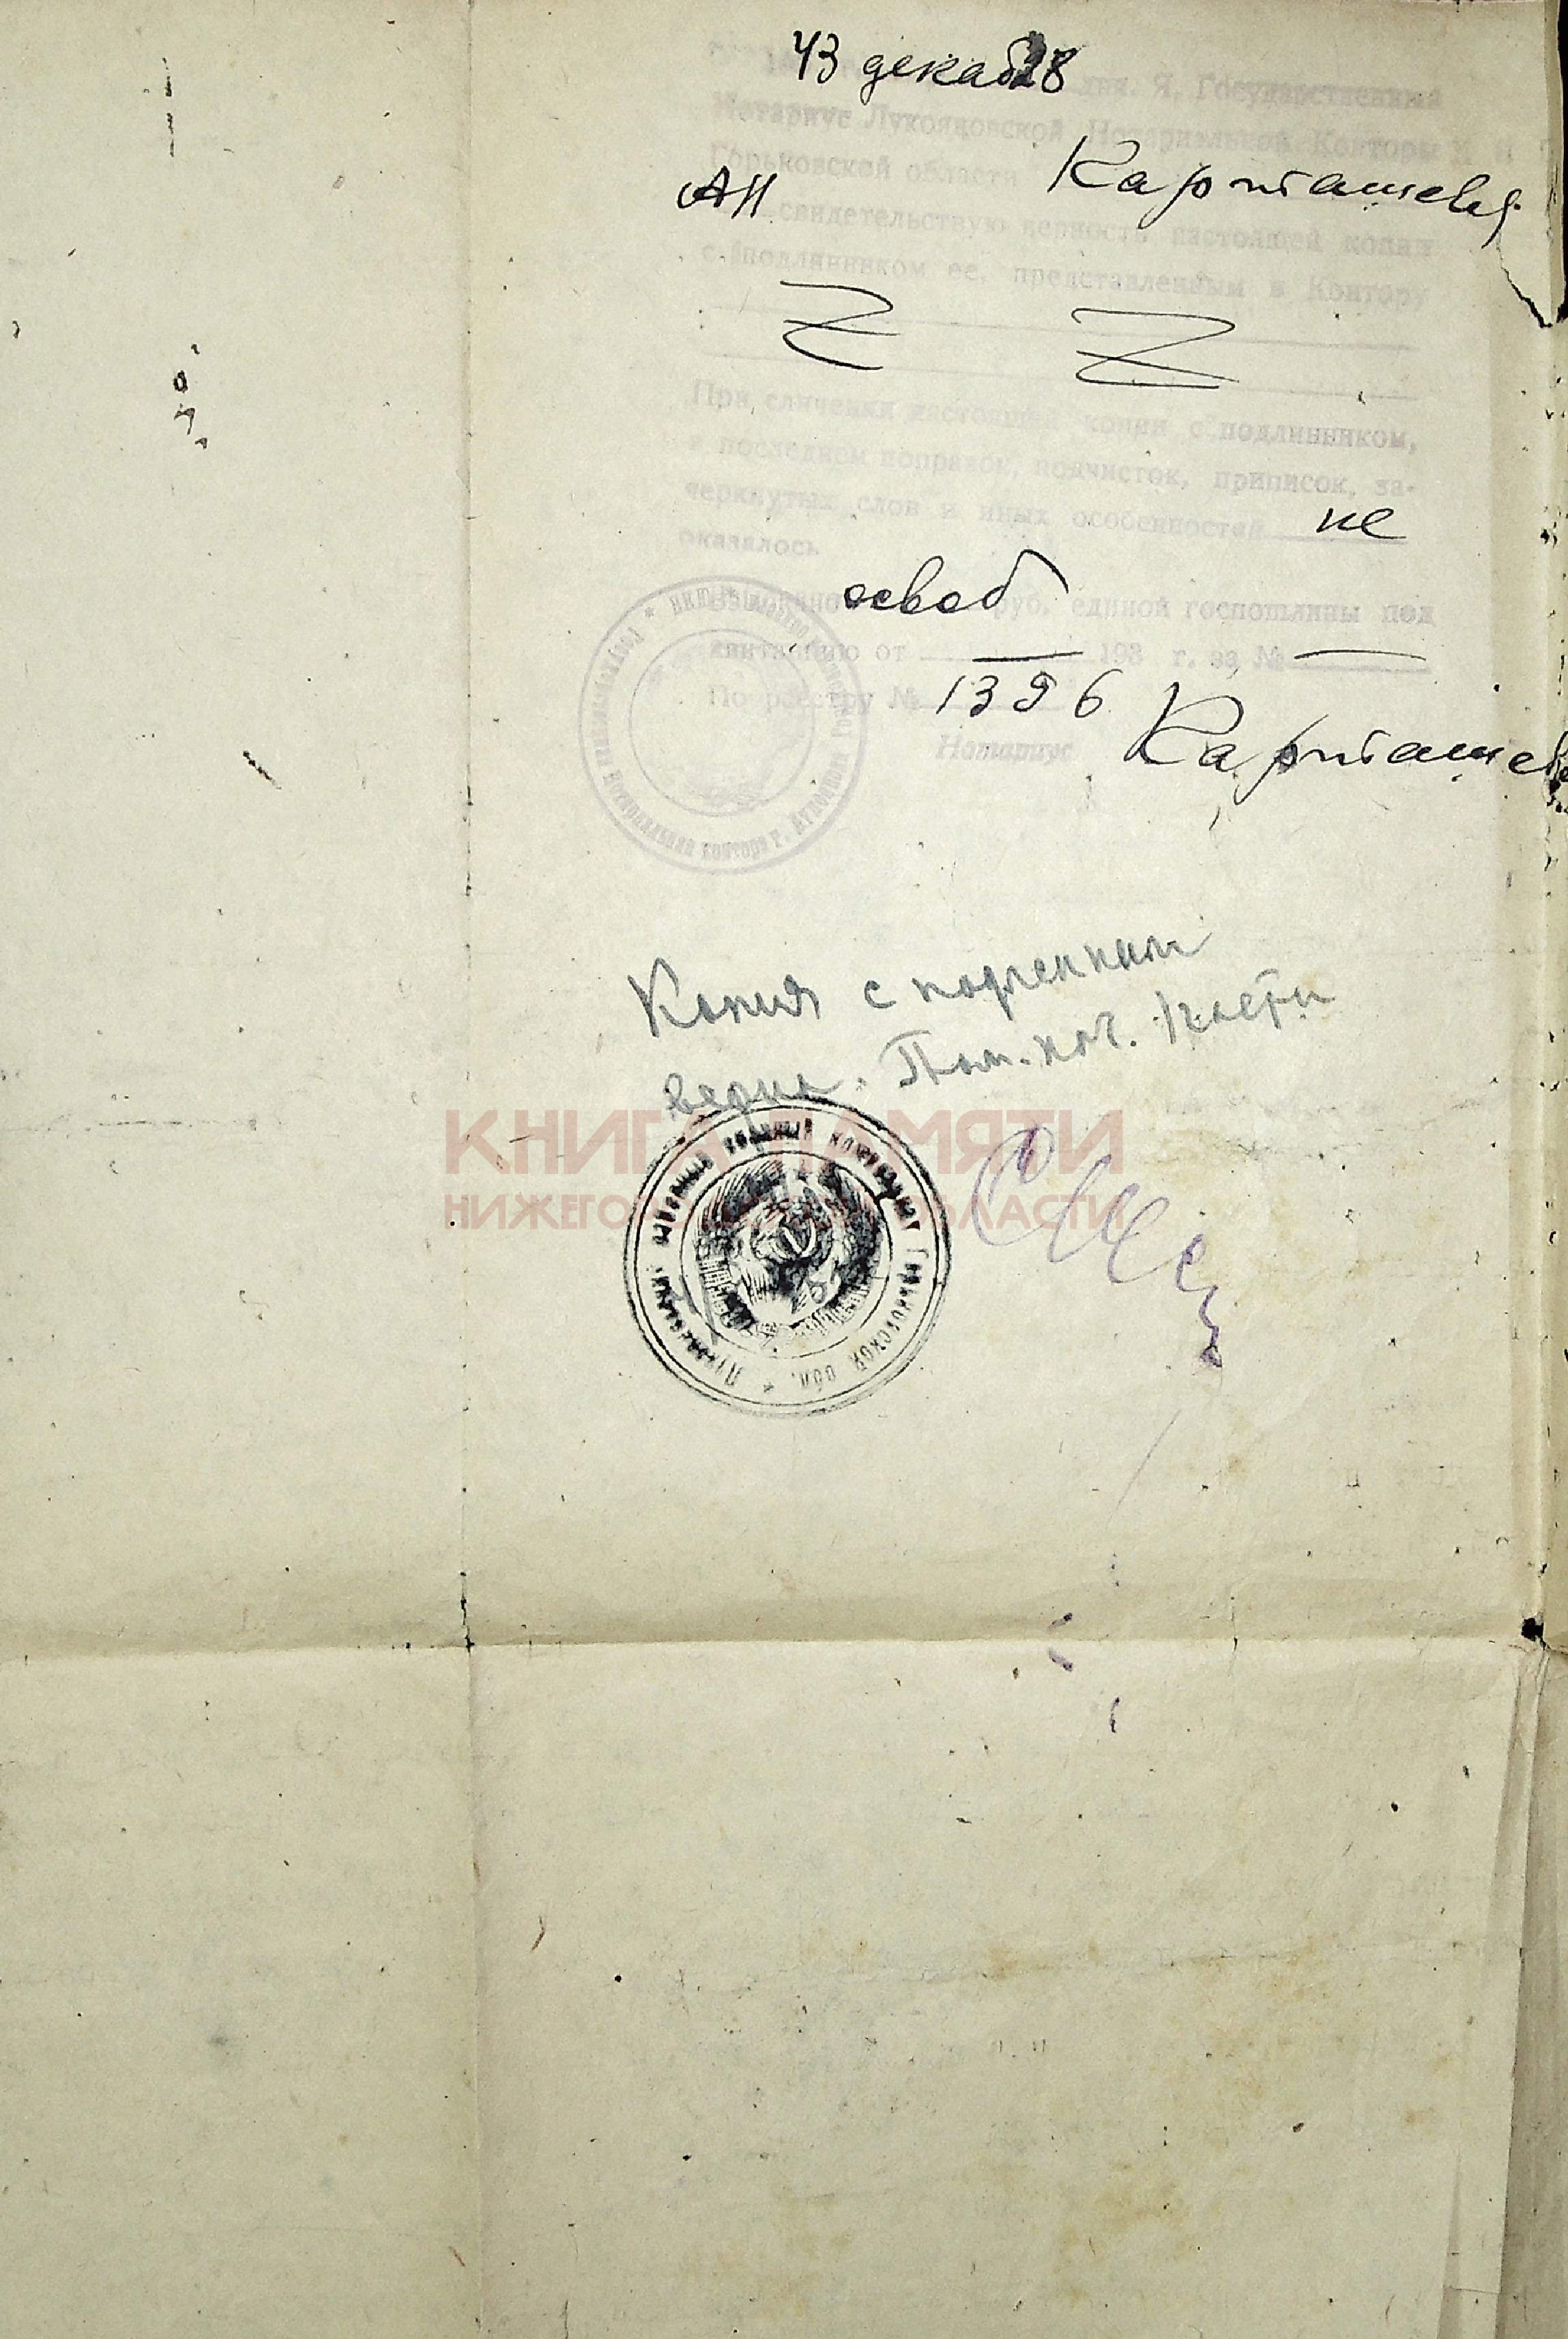 43 декаб 28
дня. Я, Государственный
Нотариус Лукояновской Нотариальной Конторы
Горьковской области Карташева
АН свидетельствую верность настоящей копии
с подлинником ее, представленным в Контору
При сличении настоящей копии с подлинником,
в последнем поправок, подчисток, приписок, за-
черкнутых слов и иных особенностей не
оказалось
Взыскано освоб руб. единой госпошлины под
квитанцию от — 193 г. за № —
По реестру № 1396
Нотариус Карташева
Копия с
верна. Пом. нач. части
КНИГА ПАМЯТИ
НИЖЕГОРОДСКОЙ ОБЛАСТИ
Лукояновский районный военный комиссариат Горьковской обл.